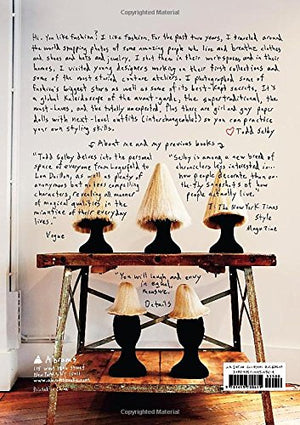 Hi. You like Fashion? I like Fashion. For the past two years, I traveled around
the world snapping photos of some amazing people who live and breathe clothes
and shoes and hats and jewelry. I shot them in their workspaces and in their
homes. I visited young designers working on their first collections and
some of the most storied couture ateliers. I photographed some of
fashion's biggest stars as well as some of its best-kept secrets. It's
a global kaleidoscope of the avant-garde, the supertraditional, the
must-haves, and the totally unexpected, plus there are girl and guy paper
dolls with next-level outfits (interchangeable!) so you can practice
your own styling skills.
♡ Todd Selby
About me and my previous books
"Todd Selby delves into the personal
space of everyone from Lagerfeld to
Lou Doillon, as well as of plenty of
anonymous but no less compelling
characters, revealing all manner
of magical qualities in the
minutiae of their everyday
lives."
Vogue
"Selby is among a new breed of
characters less interested in
how people decorate than on-
the-fly snapshots of how
people actually live."
T: The New York Times
Style
Magazine
"You will laugh and envy
in equal
measure."
Details
Abrams
115 West 18th Street
New York, NY 10011
Copyrighted Material